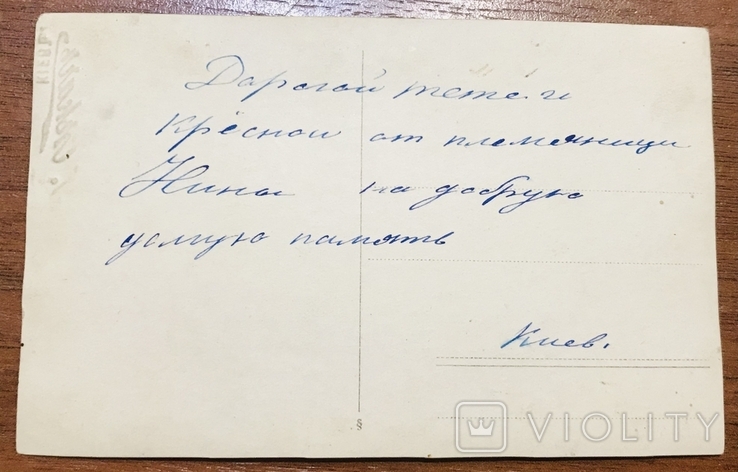 Дорогой тете и
крёсной от племянници
Нины на добрую
долгую память
Киев.
КІЕВЪ
VIOLITY